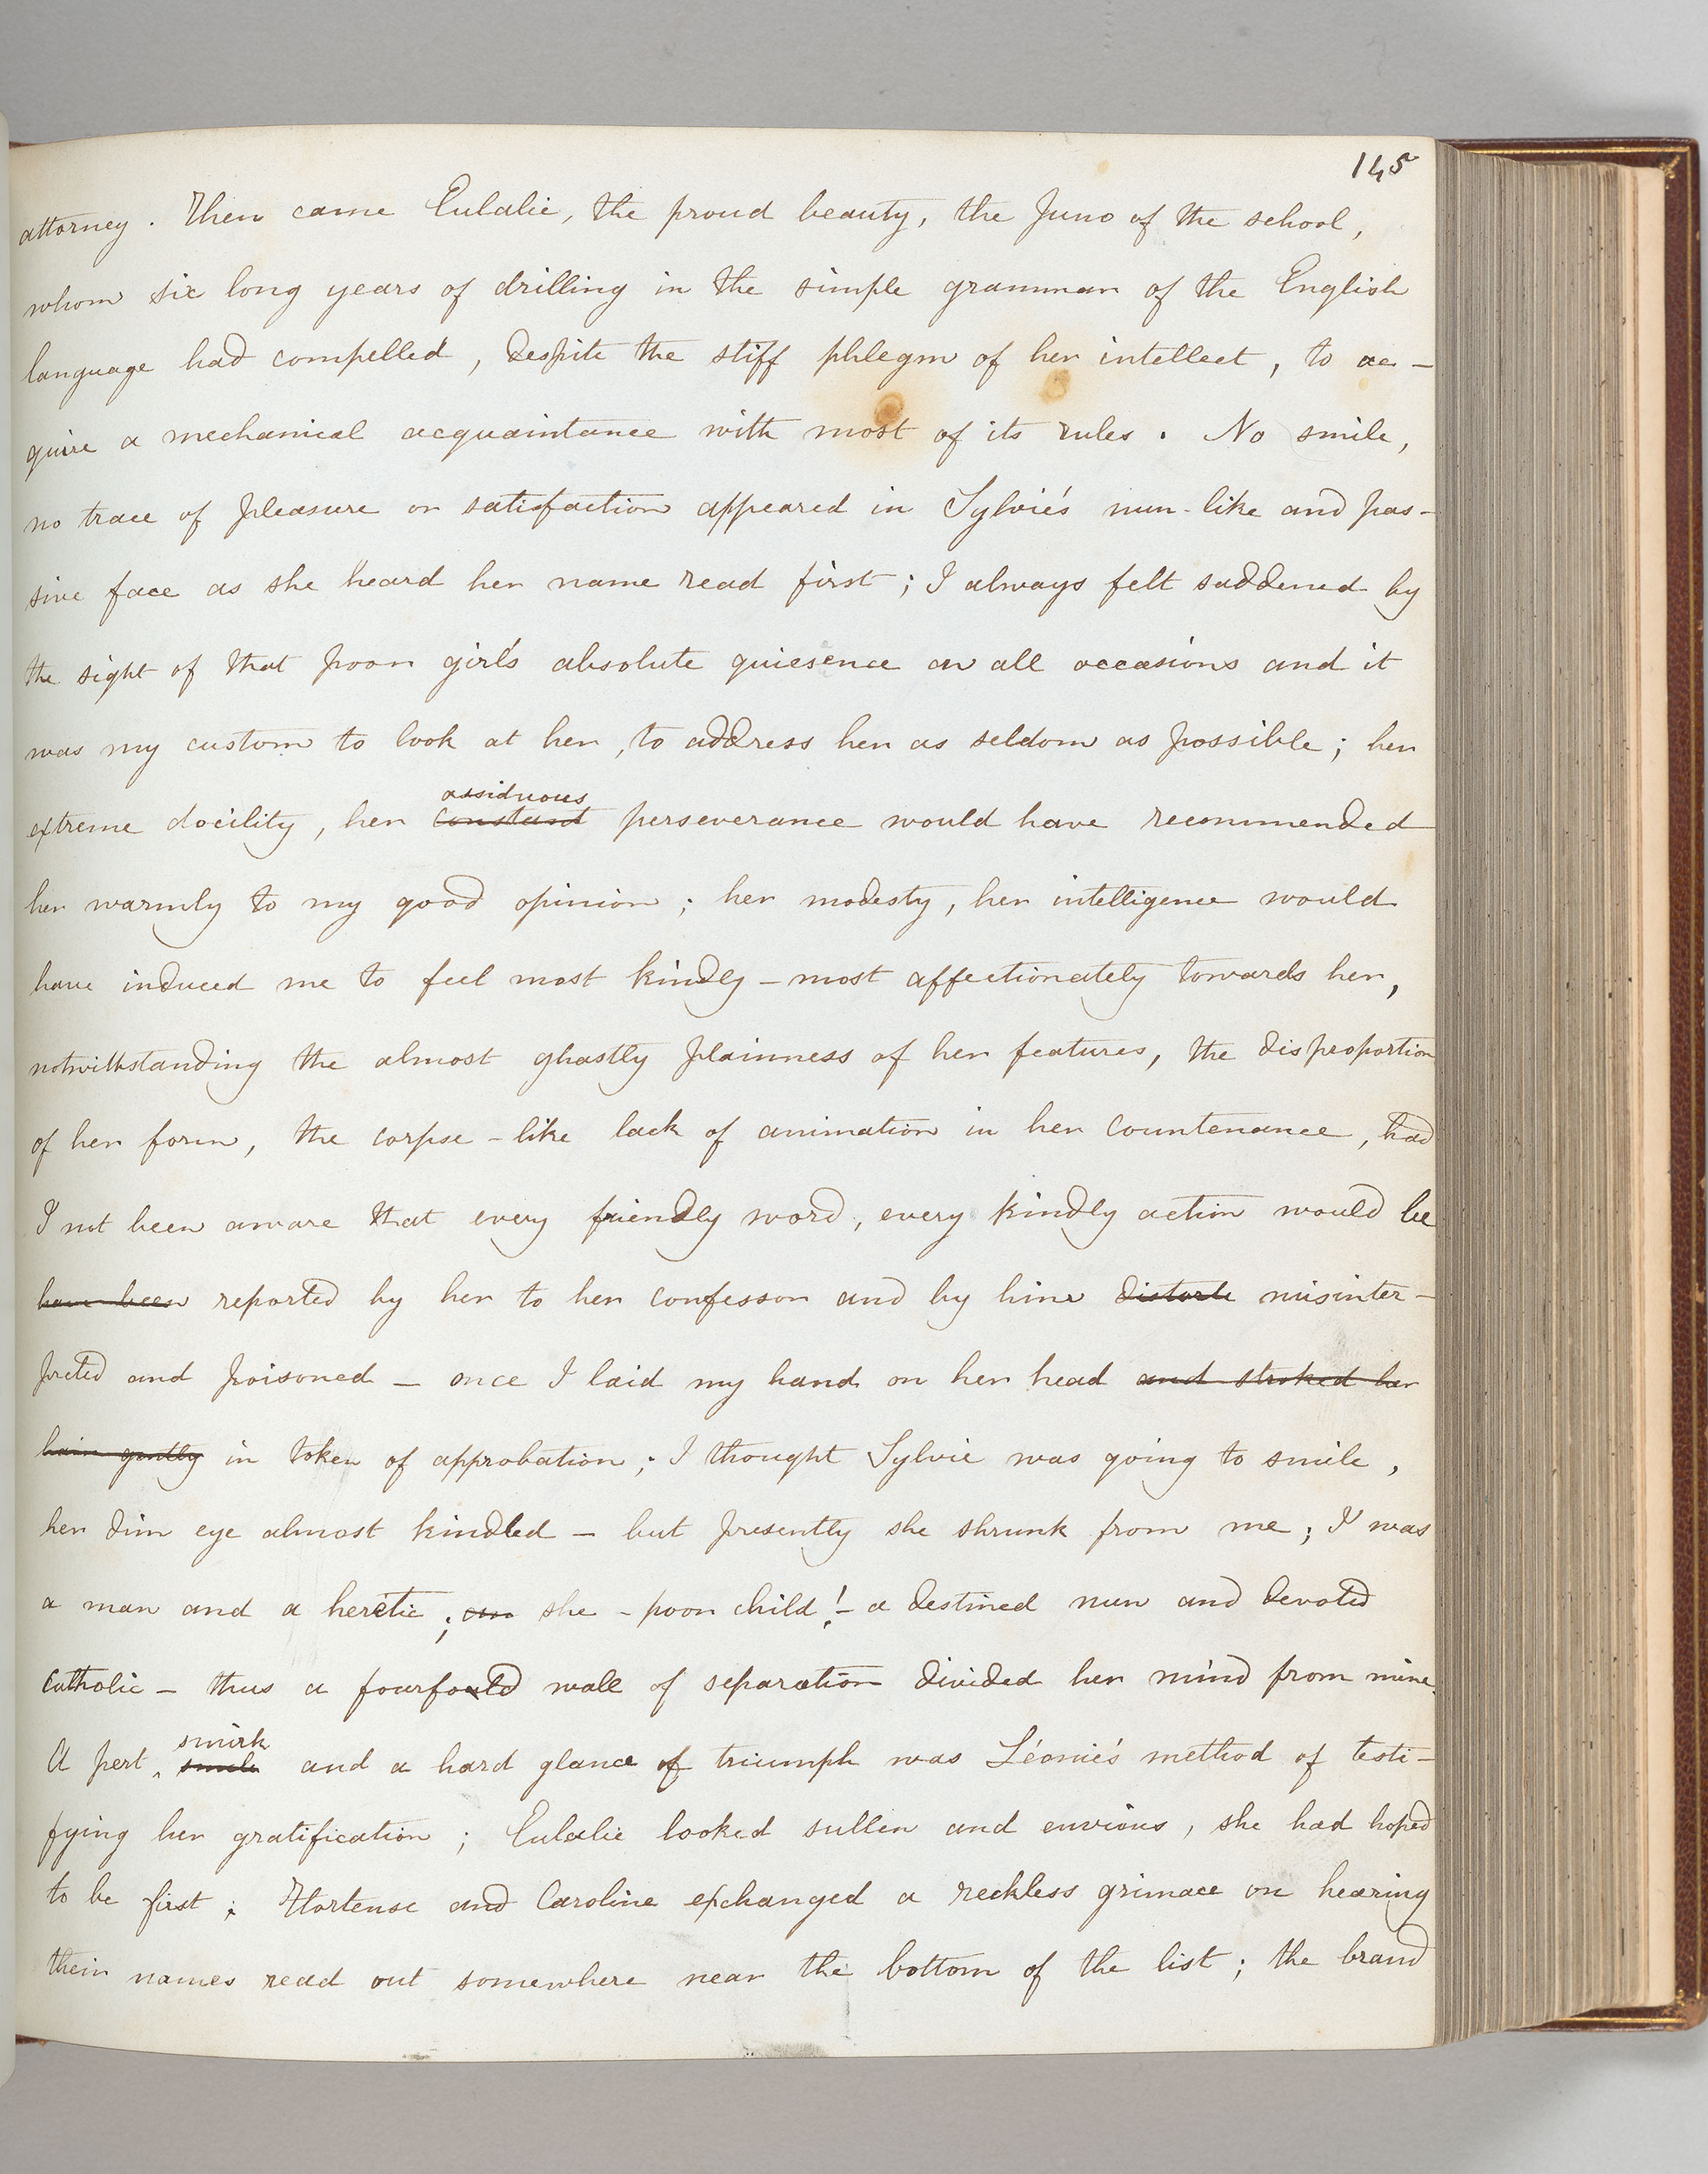 145
attorney. Then came Eulalie, the proud beauty, the Juno of the school,
whom six long years of drilling in the simple grammar of the English
language had compelled, despite the stiff phlegm of her intellect, to ac-
quire a mechanical acquaintance with most of its rules. No smile,
no trace of pleasure or satisfaction appeared in Sylvie's nun-like and pas-
sive face as she heard her name read first; I always felt saddened by
the sight of that poor girl's absolute quiesence on all occasions and it
was my custom to look at her, to address her as seldom as possible; her
assiduous
extreme docility, her constant perseverance would have recommended
her warmly to my good opinion; her modesty, her intelligence would
have induced me to feel most kindly - most affectionately towards her,
notwithstanding the almost ghastly plainness of her features, the disproportion
of her form, the corpse-like lack of animation in her countenance, had
I not been aware that every friendly word, every kindly action would be
have been reported by her to her confessor and by him distorte misinter-
preted and poisoned - once I laid my hand on her head and stroked her
hair gently in token of approbation; I thought Sylvie was going to smile,
her dim eye almost kindled - but presently she shrunk from me; I was
a man and a heretic; she - poor child! - a destined nun and devoted
Catholic - thus a fourfould wall of separation divided her mind from mine.
smirk
A pert smile and a hard glance of triumph was Léonie's method of testi-
fying her gratification; Eulalie looked sullen and envious, she had hoped
to be first; Hortense and Caroline exchanged a reckless grimace on hearing
their names read out somewhere near the bottom of the list; the brand